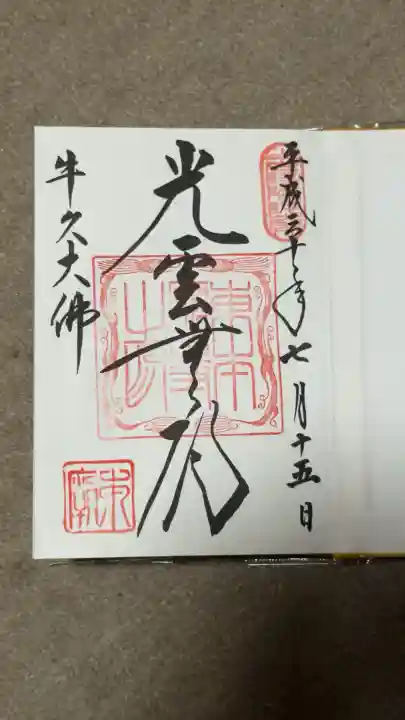 平成三十年七月十五日
光雲無礙
牛久大佛